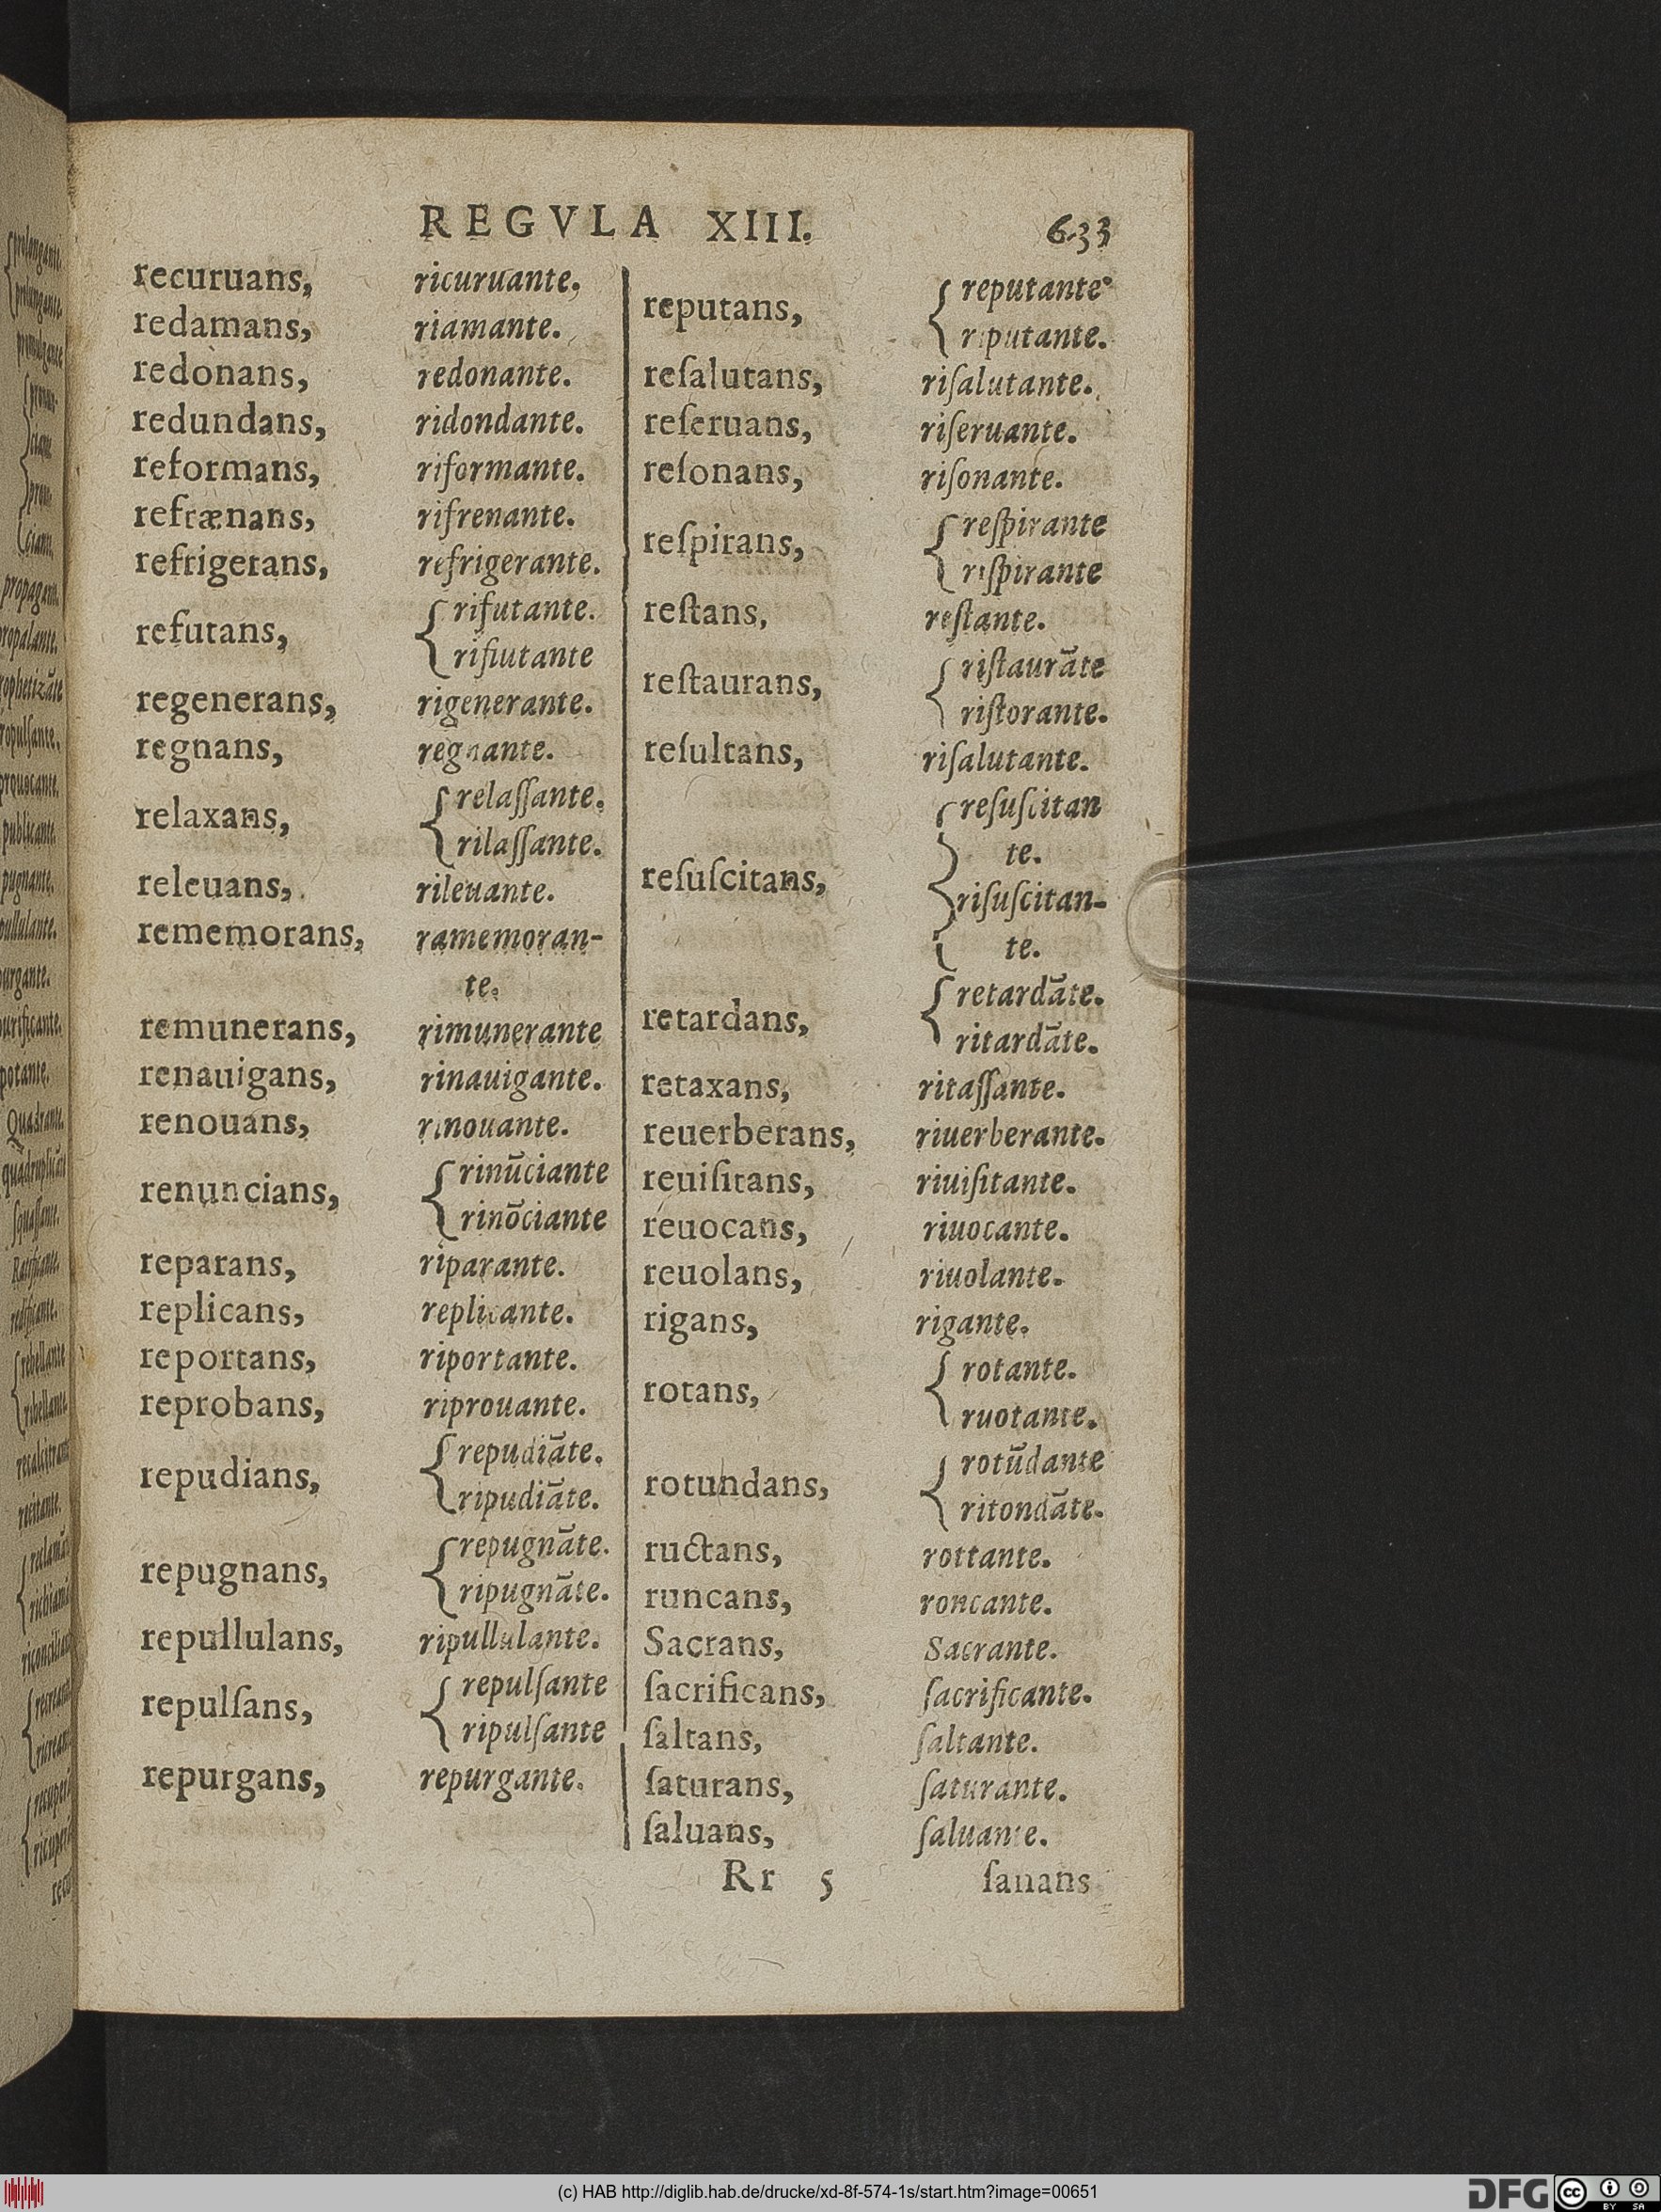 REGVLA XIII. 633
recuruans, ricuruante,
redamans, riamante.
redonans, redonante.
redundans, ridondante.
reformans, riformante.
refrænans, rifrenante.
refrigerans, refrigerante.
refutans, { rifutante.
rifiutante
regenerans, rigenerante.
regnans, regnante.
relaxans, { relaſſante.
rilaſſante.
releuans, rileuante.
rememorans, ramemoran-
te.
remunerans, rimunerante
renauigans, rinauigante.
renouans, rinouante.
renuncians, { rinūciante
rinōciante
reparans, riparante.
replicans, replicante.
reportans, riportante.
reprobans, riprouante.
repudians, { repudiāte.
ripudiāte.
repugnans, { repugnāte.
ripugnāte.
repullulans, ripullulante.
repulſans, { repulſante
ripulſante
repurgans, repurgante.
reputans, { reputante
riputante.
reſalutans, riſalutante.
reſeruans, riſeruante.
reſonans, riſonante.
reſpirans, { reſpirante
riſpirante
reſtans, reſtante.
reſtaurans, { riſtaurāte
riſtorante.
reſultans, riſalutante.
reſuſcitans, { reſuſcitan
te.
riſuſcitan-
te.
retardans, { retardāte.
ritardāte.
retaxans, ritaſſante.
reuerberans, riuerberante.
reuiſitans, riuiſitante.
reuocans, riuocante.
reuolans, riuolante.
rigans, rigante.
rotans, { rotante.
ruotante.
rotundans, { rotūdante
ritondāte.
ructans, rottante.
runcans, roncante.
Sacrans, Sacrante.
ſacrificans, ſacrificante.
ſaltans, ſaltante.
ſaturans, ſaturante.
ſaluans, ſaluante.
Rr 5 ſanans
(c) HAB http://diglib.hab.de/drucke/xd-8f-574-1s/start.htm?image=00651
DFG cc BY SA